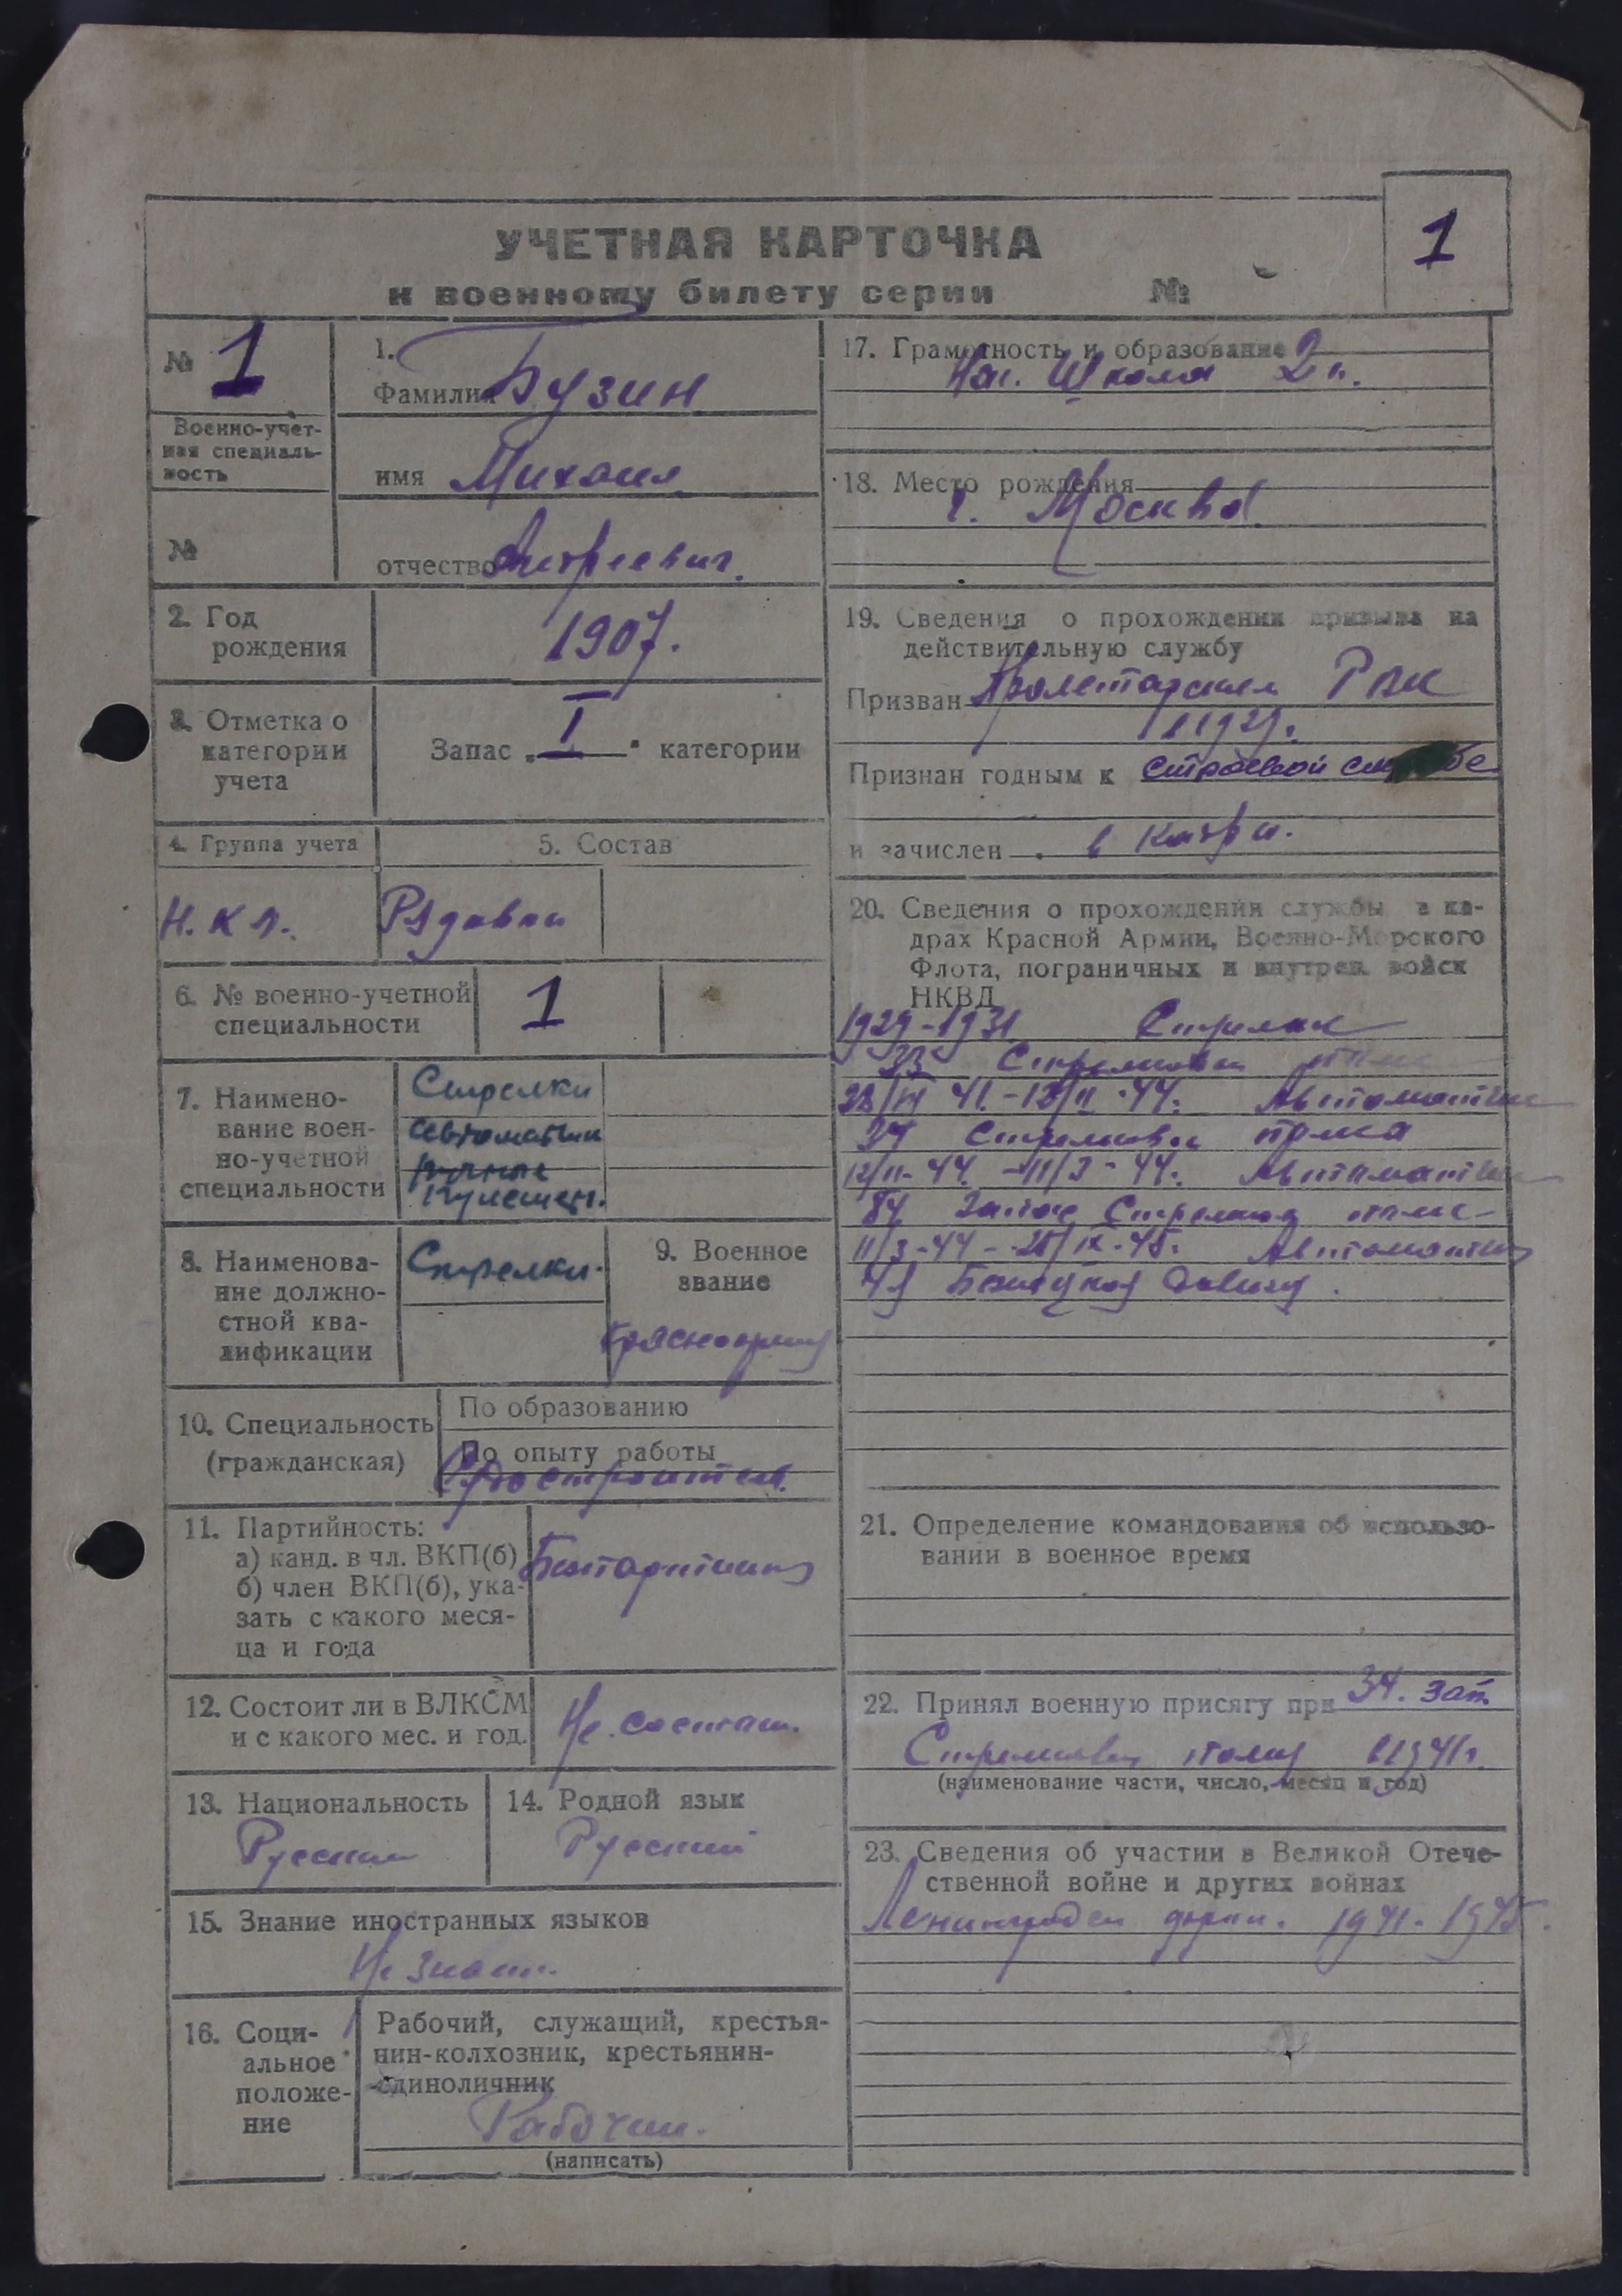 УЧЕТНАЯ КАРТОЧКА
к военному билету серии №
1
№ 1
Военно-учет-
ная специаль-
ность
№
1.
Фамилия Бузин
имя Михаил
отчество Андреевич.
2. Год
рождения
1907.
3. Отметка о
категории
учета
Запас „I“ категории
4. Группа учета
Н.К.
5. Состав
Рядовой
6. № военно-учетной
специальности
1
7. Наимено-
вание воен-
но-учетной
специальности
Стрелки
автоматчик
ручные
пулеметч.
8. Наименова-
ние должно-
стной ква-
лификации
Стрелки.
9. Военное
звание
Красноармеец
10. Специальность
(гражданская)
По образованию
По опыту работы
Судостроитель.
11. Партийность:
а) канд. в чл. ВКП(б)
б) член ВКП(б), ука-
зать с какого меся-
ца и года
12. Состоит ли в ВЛКСМ
и с какого мес. и год.
Не состоит.
13. Национальность
Русский
14. Родной язык
Русский
15. Знание иностранных языков
Не знает.
16. Соци-
альное
положе-
ние
Рабочий, служащий, крестья-
нин-колхозник, крестьянин-
единоличник
Рабочий.
(написать)
17. Грамотность и образование 2
Нач. Школа
18. Место рождения
г. Москва
19. Сведения о прохождении призыва на
действительную службу
Призван Пролетарским РВК
в 1929г.
Признан годным к строевой службе
и зачислен в кадры.
20. Сведения о прохождении службы в ка-
драх Красной Армии, Военно-Морского
Флота, пограничных и внутрен. войск
НКВД
1929-1931 Стрелок
33 Стрелковый полк
41. - 12/II-44. Автоматчик
Стрелковый полка
12/II-44. - 11/3-44. Автоматчик
84 Запас Стрелков полк
11/3-44 - 25/IX-45. Автоматчик
21. Определение командования об использо-
вании в военное время
22. Принял военную присягу при 34. зап.
Стрелковый полку в 1941г.
(наименование части, число, месяц и год)
23. Сведения об участии в Великой Отече-
ственной войне и других войнах
Ленинградск фронт. 1941-1945.